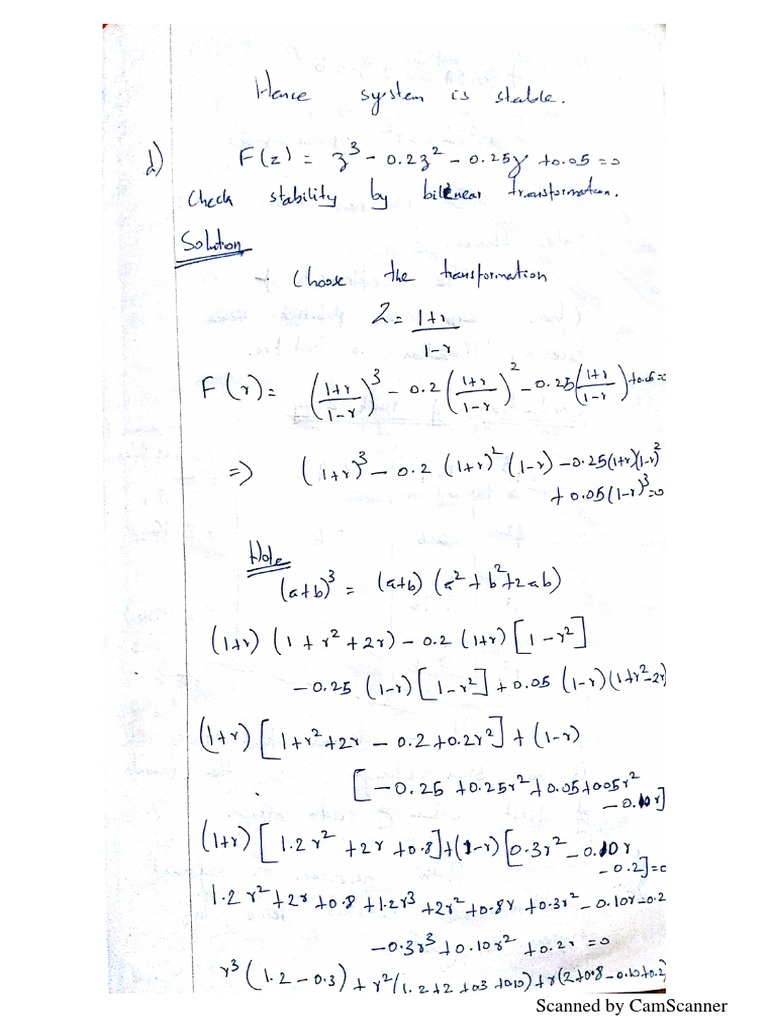 Hence system is stable.
d) F(z) = z³ - 0.2z² - 0.25z + 0.05 = 0
Check stability by bilinear transformation.
Solution
Choose the transformation
Z = 1+r
1-r
F(r) = (1+r/1-r)³ - 0.2 (1+r/1-r)² - 0.25 (1+r/1-r) + 0.05 =
=> (1+r)³ - 0.2 (1+r)² (1-r) - 0.25 (1+r)(1-r)²
+ 0.05 (1-r)³ = 0
Note
(a+b)³ = (a+b) (a² + b² + 2ab)
(1+r) (1 + r² + 2r) - 0.2 (1+r) [1 - r²]
- 0.25 (1-r) [1 - r²] + 0.05 (1-r) (1+r²-2r)
(1+r) [1 + r² + 2r - 0.2 + 0.2r²] + (1-r)
[- 0.25 + 0.25r² + 0.05 + 005r²
- 0.10r]
(1+r) [1.2r² + 2r + 0.8] + (1-r) [0.3r² - 0.10r
- 0.2] = 0
1.2r² + 2r + 0.8 + 1.2r³ + 2r² + 0.8r + 0.3r² - 0.10r - 0.2
- 0.3r³ + 0.10r² + 0.2r = 0
r³ (1.2 - 0.3) + r² (1.2 + 2 + 03 + 010) + r (2 + 0.8 - 0.10 + 0.2)
Scanned by CamScanner